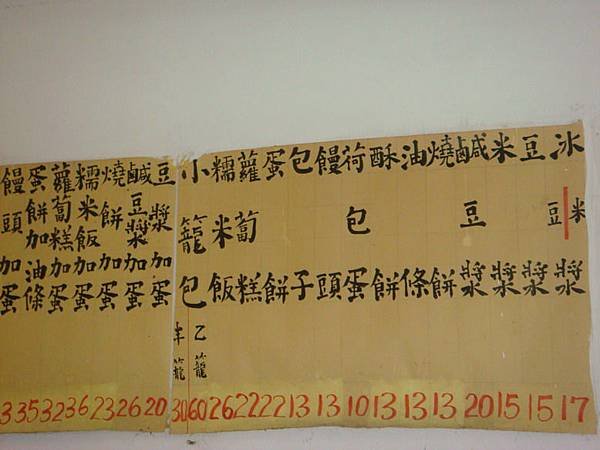 冰豆米漿 17
豆漿 15
米漿 15
鹹豆漿 20
燒餅 13
油條 13
酥餅 13
荷包蛋 10
饅頭 13
包子 13
蛋餅 22
蘿蔔糕 22
糯米飯 26
小籠包 乙籠 60 半籠 30
豆漿加蛋 20
鹹豆漿加蛋 26
燒餅加蛋 23
糯米飯加蛋 36
蘿蔔糕加蛋 32
蛋餅加油條 35
饅頭加蛋 3